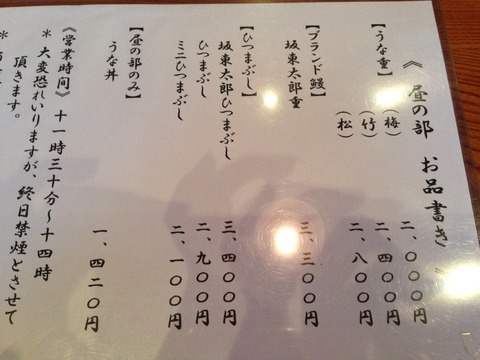 《 昼の部 お品書き 》
【うな重】
(梅) 二、〇〇〇円
(竹) 二、四〇〇円
(松) 二、八〇〇円
【ブランド鰻】
坂東太郎重 三、三〇〇円
【ひつまぶし】
坂東太郎ひつまぶし 三、四〇〇円
ひつまぶし 二、九〇〇円
ミニひつまぶし 二、一〇〇円
【昼の部のみ】
うな丼 一、四二〇円
《営業時間》 十一時三十分~十四時
* 大変恐れいりますが、終日禁煙とさせて
頂きます。